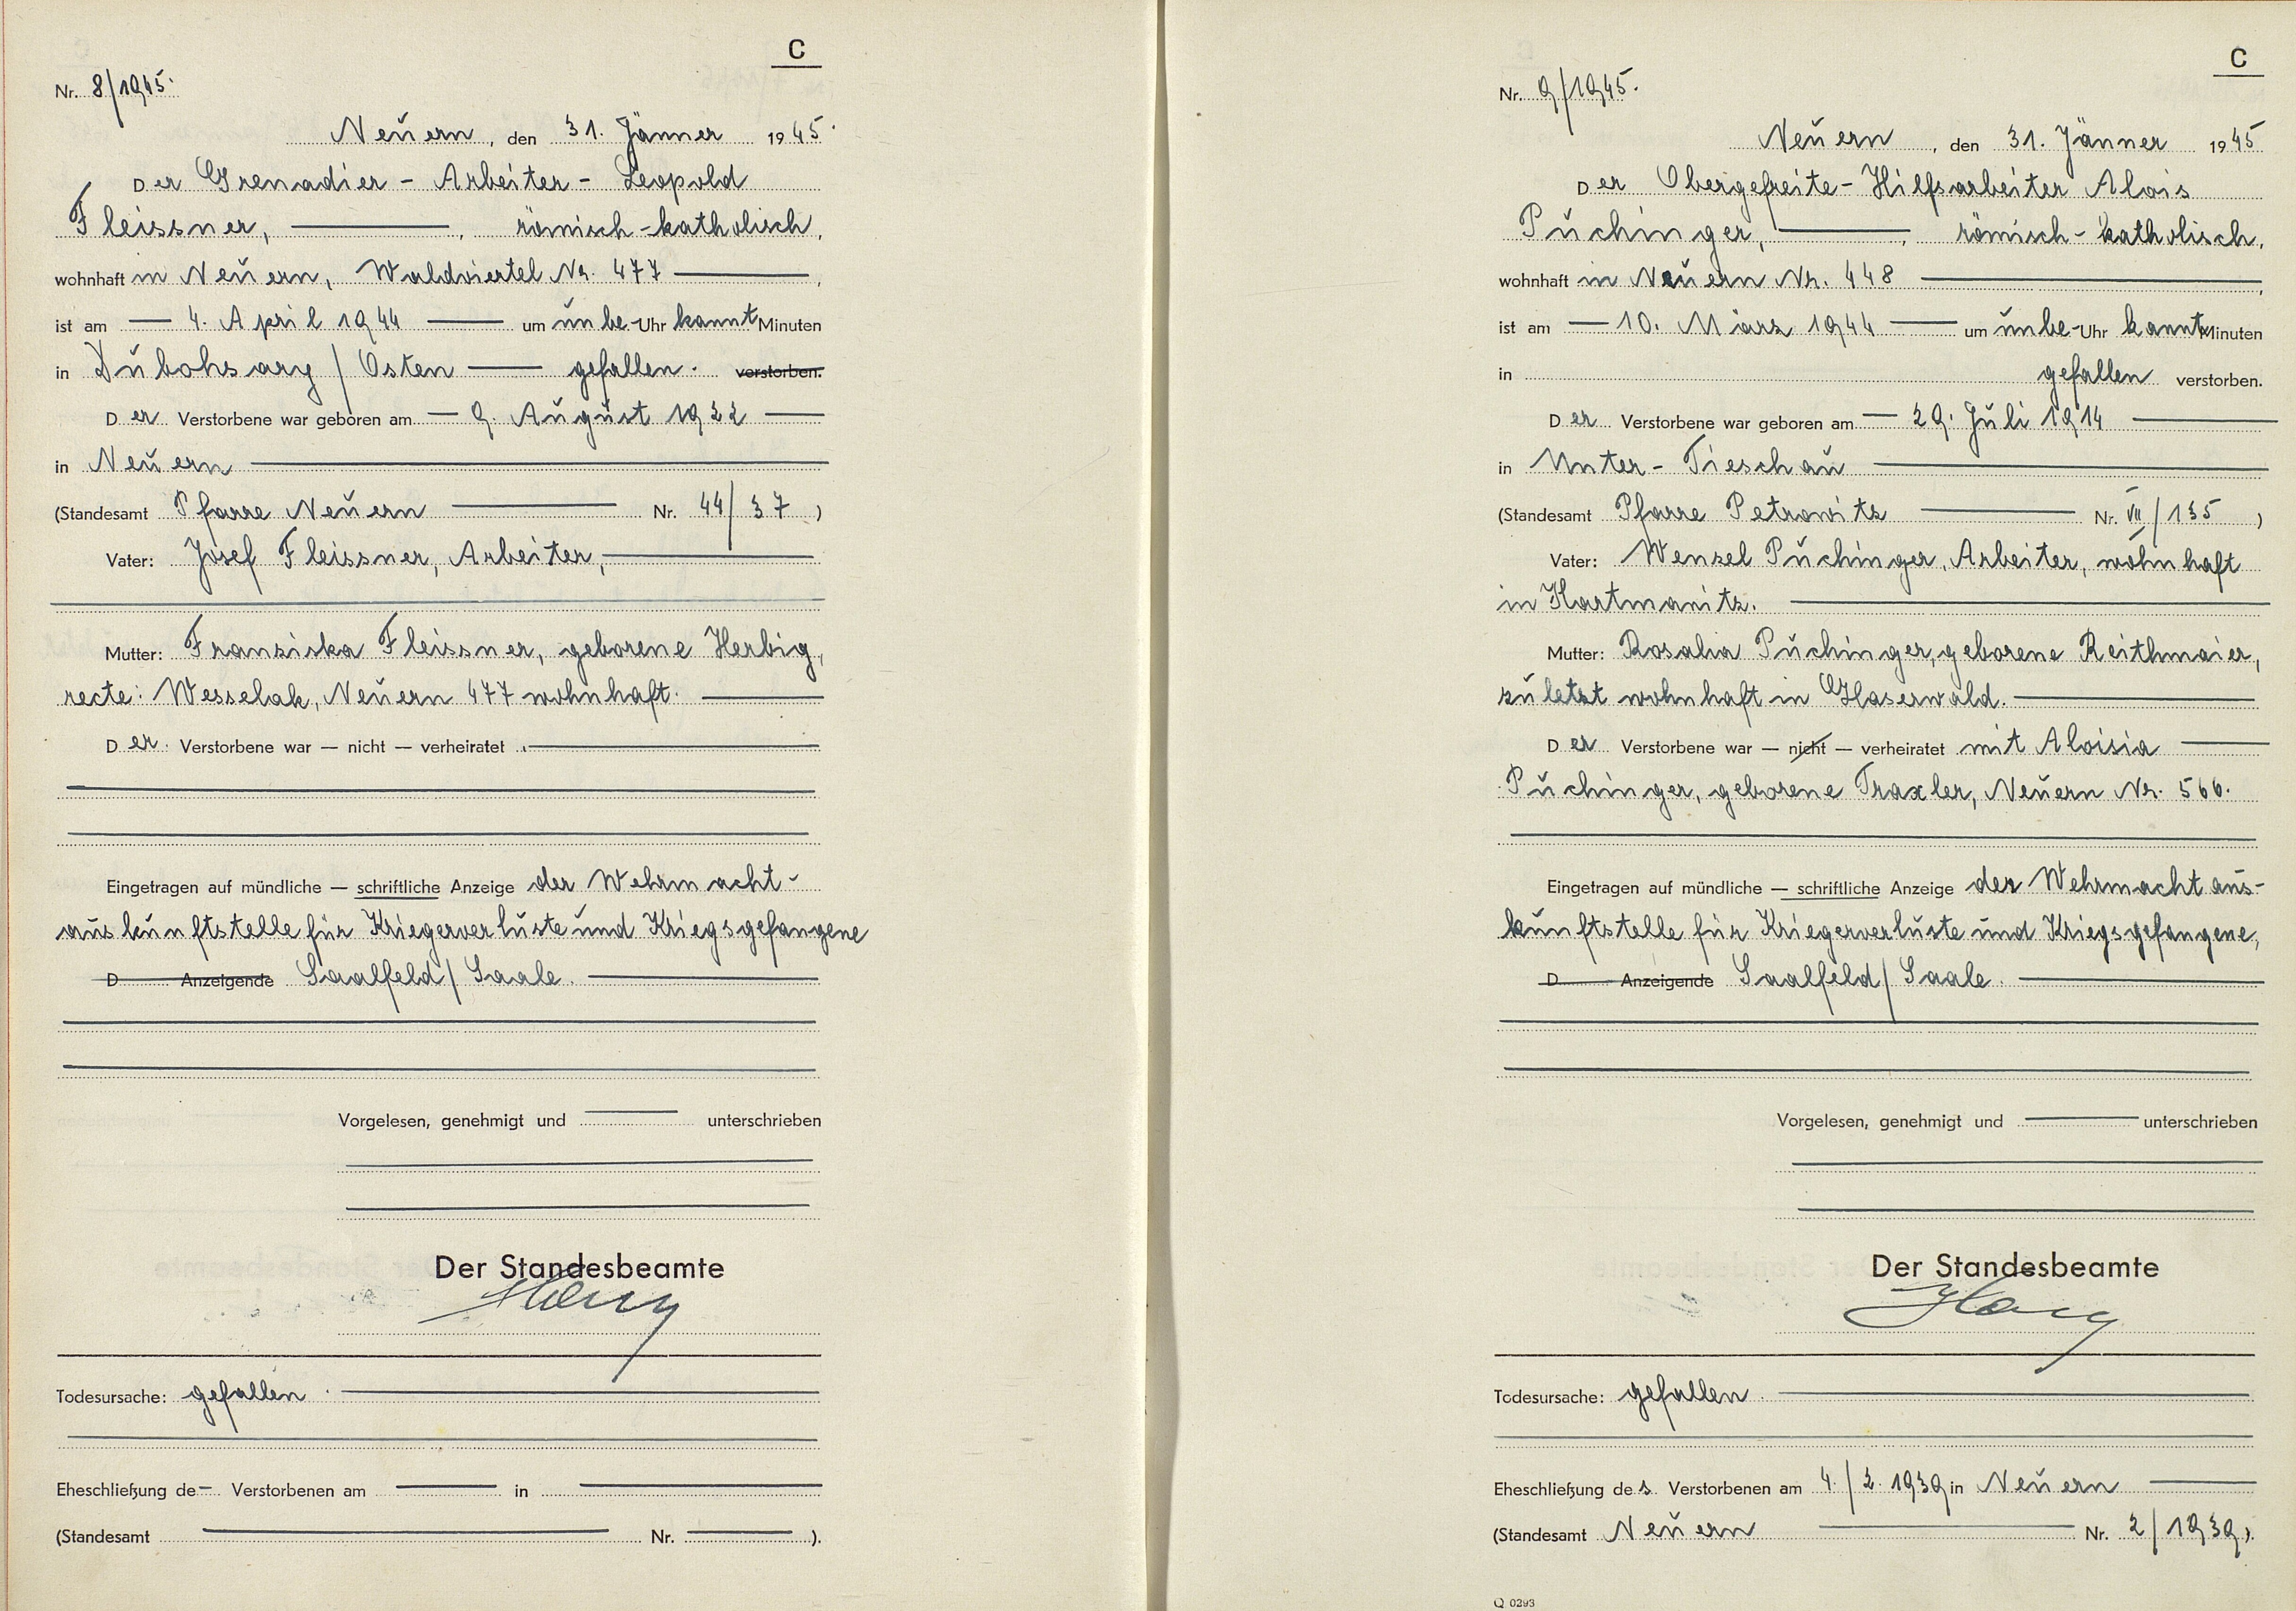 C
Nr. 8/1945.
Neuern, den 31. Jänner 1945.
Der Grenadier - Arbeiter - Leopold
Fleissner, ———, römisch-katholisch,
wohnhaft in Neuern, Waldviertel Nr. 477 ———,
ist am — 4. April 1944 — um unbe-Uhr kannt Minuten
in Dubohsary / Osten — gefallen. verstorben.
Der Verstorbene war geboren am — 9. August 1922 —
in Neuern ———
(Standesamt Pfarre Neuern ——— Nr. 44/37)
Vater: Josef Fleissner, Arbeiter, ———
Mutter: Franziska Fleissner, geborene Herbig,
recte: Wesselak, Neuern 477 wohnhaft. ———
Der Verstorbene war — nicht — verheiratet ———
Eingetragen auf mündliche — schriftliche Anzeige der Wehrmacht-
auskunftstelle für Kriegerverluste und Kriegsgefangene
D Anzeigende Saalfeld/Saale. ———
Vorgelesen, genehmigt und ——— unterschrieben
Der Standesbeamte
Todesursache: gefallen. ———
Eheschließung de— Verstorbenen am ——— in ———
(Standesamt ——— Nr. ———).
C
Nr. 9/1945.
Neuern, den 31. Jänner 1945
Der Obergefreite - Hilfsarbeiter Alois
Puchinger, ———, römisch-katholisch,
wohnhaft in Neuern Nr. 448 ———,
ist am — 10. März 1944 — um unbe-Uhr kannt Minuten
in gefallen verstorben.
Der Verstorbene war geboren am — 29. Juli 1914 ———
in Unter-Tieschau ———
(Standesamt Pfarre Petrowitz ——— Nr. VII/135)
Vater: Wenzel Puchinger, Arbeiter, wohnhaft
in Hartmanitz. ———
Mutter: Rosalia Puchinger, geborene Reithmaier,
zuletzt wohnhaft in Glaserwald. ———
Der Verstorbene war — nicht — verheiratet mit Aloisia ———
Puchinger, geborene Traxler, Neuern Nr. 566.
Eingetragen auf mündliche — schriftliche Anzeige der Wehrmachtaus-
kunftstelle für Kriegerverluste und Kriegsgefangene,
D Anzeigende Saalfeld/Saale. ———
Vorgelesen, genehmigt und ——— unterschrieben
Der Standesbeamte
Todesursache: gefallen. ———
Eheschließung des Verstorbenen am 4./2. 1939 in Neuern ———
(Standesamt Neuern ——— Nr. 2/1939).
Q 0293